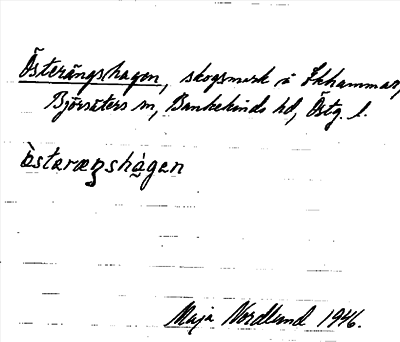 Österängshagen, skogsmark å Ekhammar,
Björsäters sn, Bankekinds hd, Östg. l.
òstəræŋshágən
Maja Nordlund 1946.